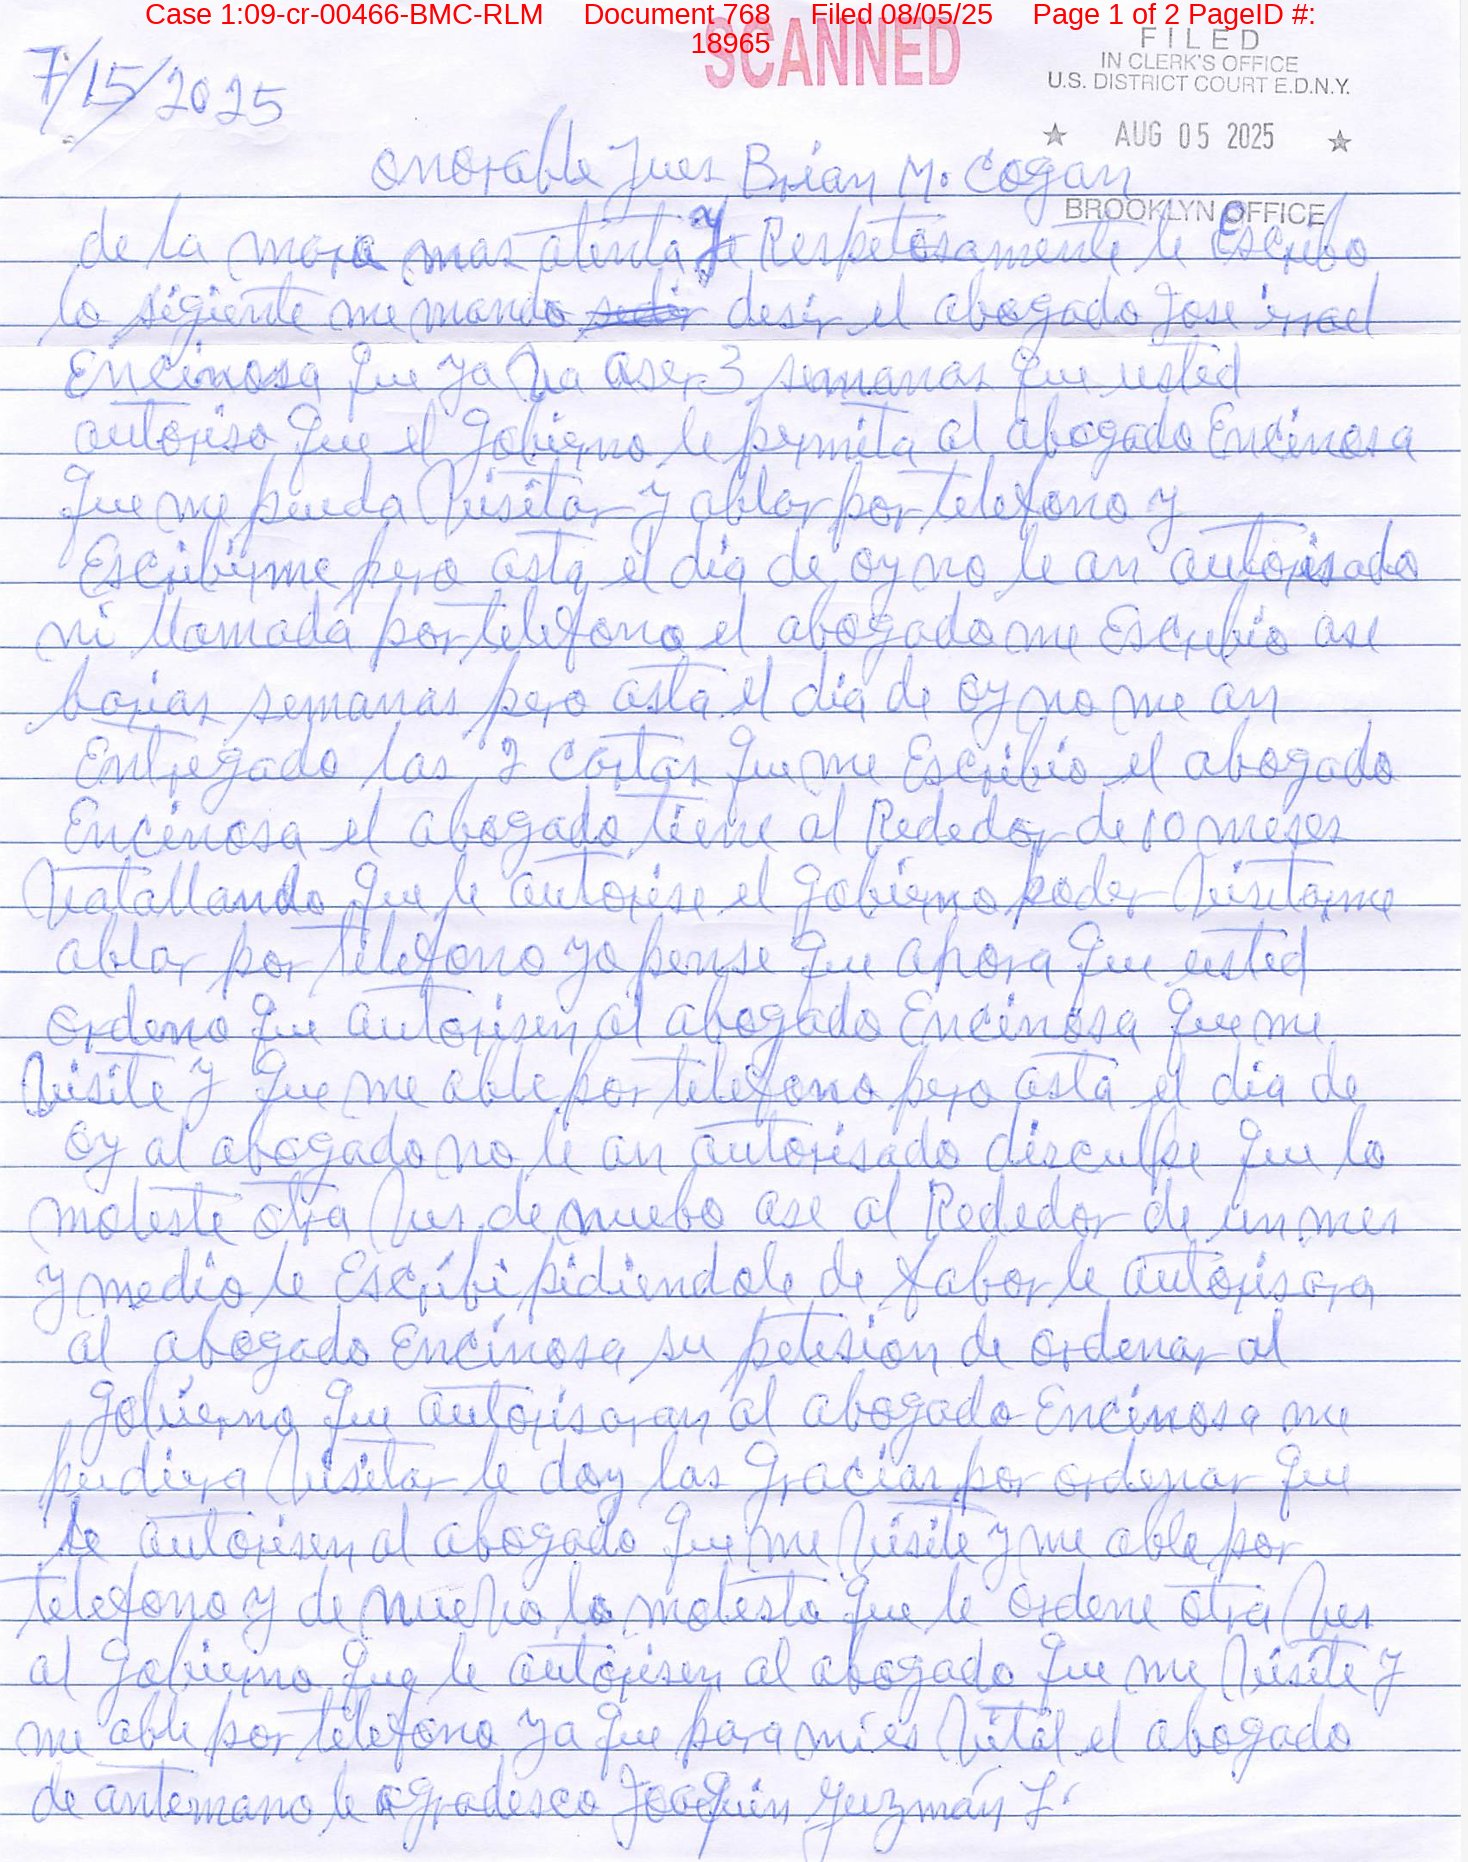 Case 1:09-cr-00466-BMC-RLM Document 768 Filed 08/05/25 Page 1 of 2 PageID #:
18965
SCANNED
FILED
IN CLERK'S OFFICE
U.S. DISTRICT COURT E.D.N.Y.
★ AUG 05 2025 ★
BROOKLYN OFFICE
7/15/2025
onorable Jues Brian M. Cogan
de la mara mas atenta y Respetosamente le Escribo
lo sigiente me mando desir el abogado Jose isrrael
Encinosa que ya va aser 3 semanas que usted
autoriso que el gobierno le permita al abogado Encinosa
que me pueda visitar y ablar por telefono y
Escribirme pero asta el dia de oy no le an autorisado
ni llamada por telefono el abogado me Escribio ase
barias semanas pero asta el dia de oy no me an
Entregado las 2 cartas que me Escribio el abogado
Encinosa el abogado tiene al Rededor de 10 meses
vatallando que le autorise el gobierno poder visitarme
ablar por telefono yo pense que ahora que usted
ordeno que autorisen al abogado Encinosa que me
visite y que me able por telefono pero asta el dia de
oy al abogado no le an autorisado disculpe que lo
moleste otra ves de nuebo ase al Rededor de un mes
y medio le Escribi pidiendole de fabor le autorisara
al abogado Encinosa su petesion de ordenar al
gobierno que autorisaran al abogado Encinosa me
pudiera visitar le doy las gracias por ordenar que
le autorisen al abogado que me visite y me able por
telefono y de nuevo lo molesto que le ordene otra ves
al gobierno que le autorisen al abogado que me visite y
me able por telefono ya que para mi es vital el abogado
de antemano le agradesco Joaquin Guzmán L.